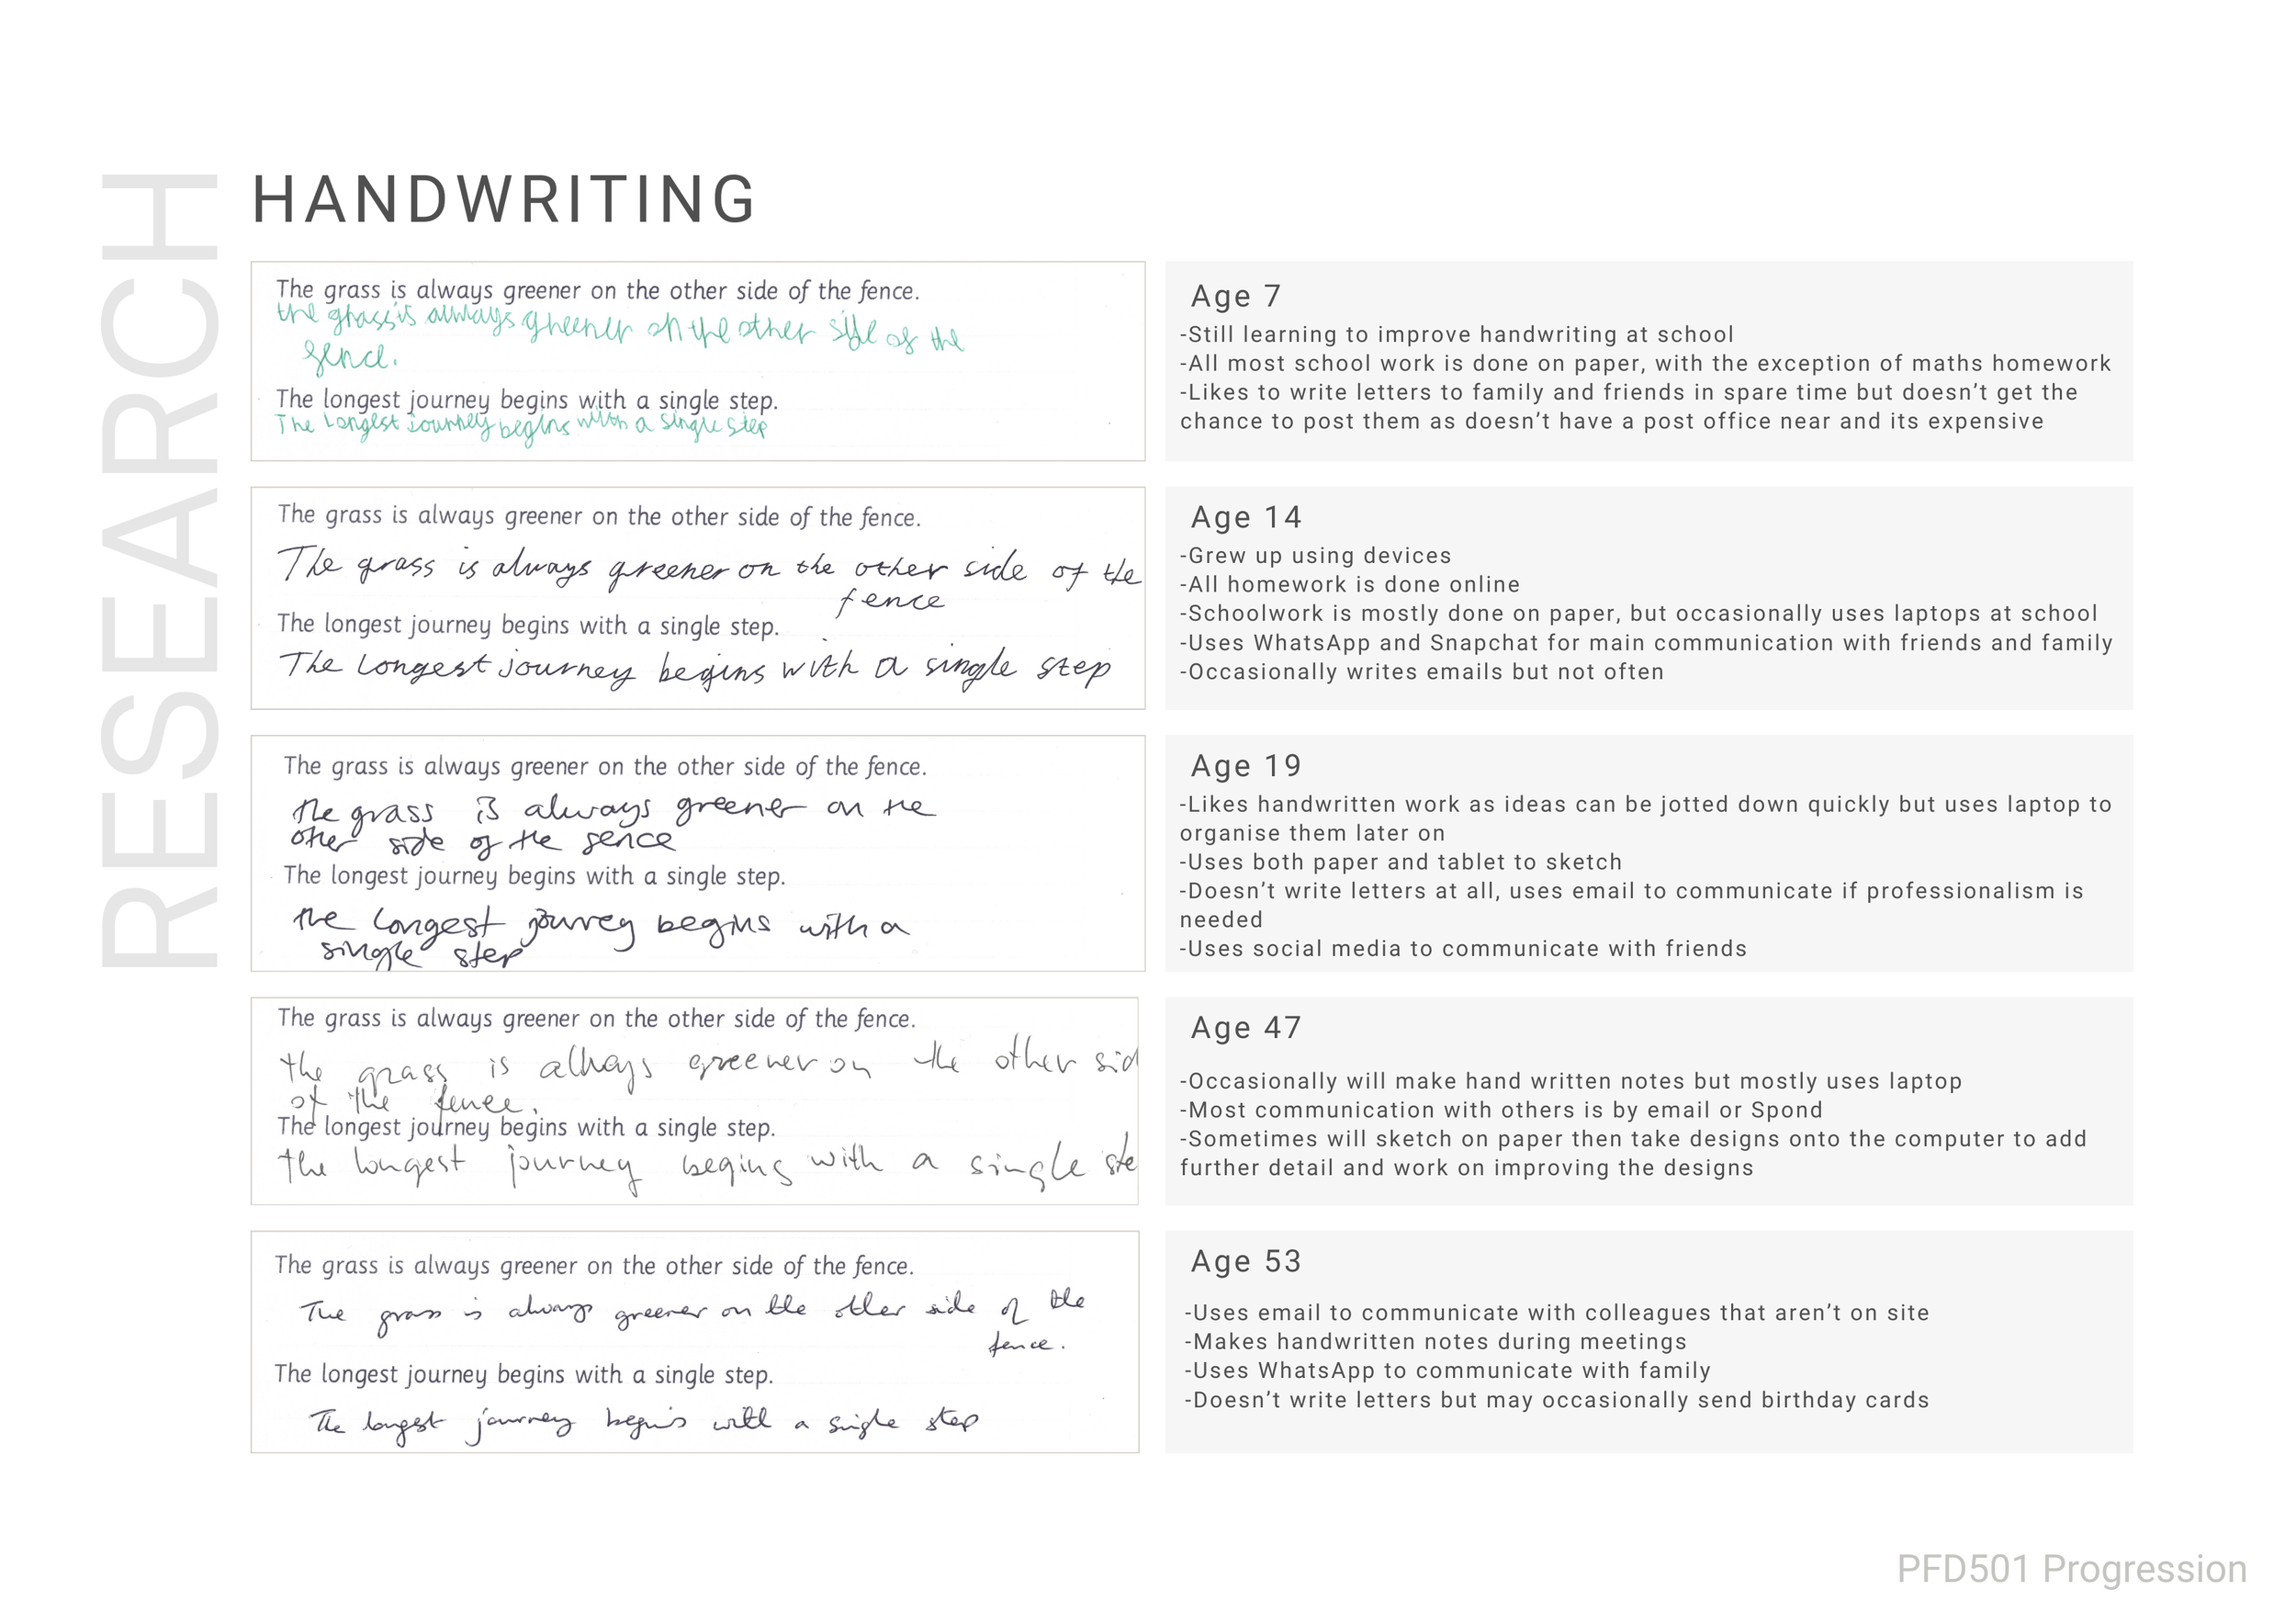 RESEARCH
HANDWRITING
The grass is always greener on the other side of the fence.
the grass is always greener on the other side of the
fence.
The longest journey begins with a single step.
The Longest journey begins with a single step
Age 7
-Still learning to improve handwriting at school
-All most school work is done on paper, with the exception of maths homework
-Likes to write letters to family and friends in spare time but doesn’t get the
chance to post them as doesn’t have a post office near and its expensive
The grass is always greener on the other side of the fence.
The grass is always greener on the other side of the
fence
The longest journey begins with a single step.
The Longest journey begins with a single step
Age 14
-Grew up using devices
-All homework is done online
-Schoolwork is mostly done on paper, but occasionally uses laptops at school
-Uses WhatsApp and Snapchat for main communication with friends and family
-Occasionally writes emails but not often
The grass is always greener on the other side of the fence.
the grass is always greener on the
other side of the fence
The longest journey begins with a single step.
the longest journey begins with a
single step
Age 19
-Likes handwritten work as ideas can be jotted down quickly but uses laptop to
organise them later on
-Uses both paper and tablet to sketch
-Doesn’t write letters at all, uses email to communicate if professionalism is
needed
-Uses social media to communicate with friends
The grass is always greener on the other side of the fence.
the grass is always greener on the other sid
of the fence.
The longest journey begins with a single step.
the longest journey begins with a single ste
Age 47
-Occasionally will make hand written notes but mostly uses laptop
-Most communication with others is by email or Spond
-Sometimes will sketch on paper then take designs onto the computer to add
further detail and work on improving the designs
The grass is always greener on the other side of the fence.
The grass is always greener on the other side of the
fence.
The longest journey begins with a single step.
The longest journey begins with a single step
Age 53
-Uses email to communicate with colleagues that aren’t on site
-Makes handwritten notes during meetings
-Uses WhatsApp to communicate with family
-Doesn’t write letters but may occasionally send birthday cards
PFD501 Progression